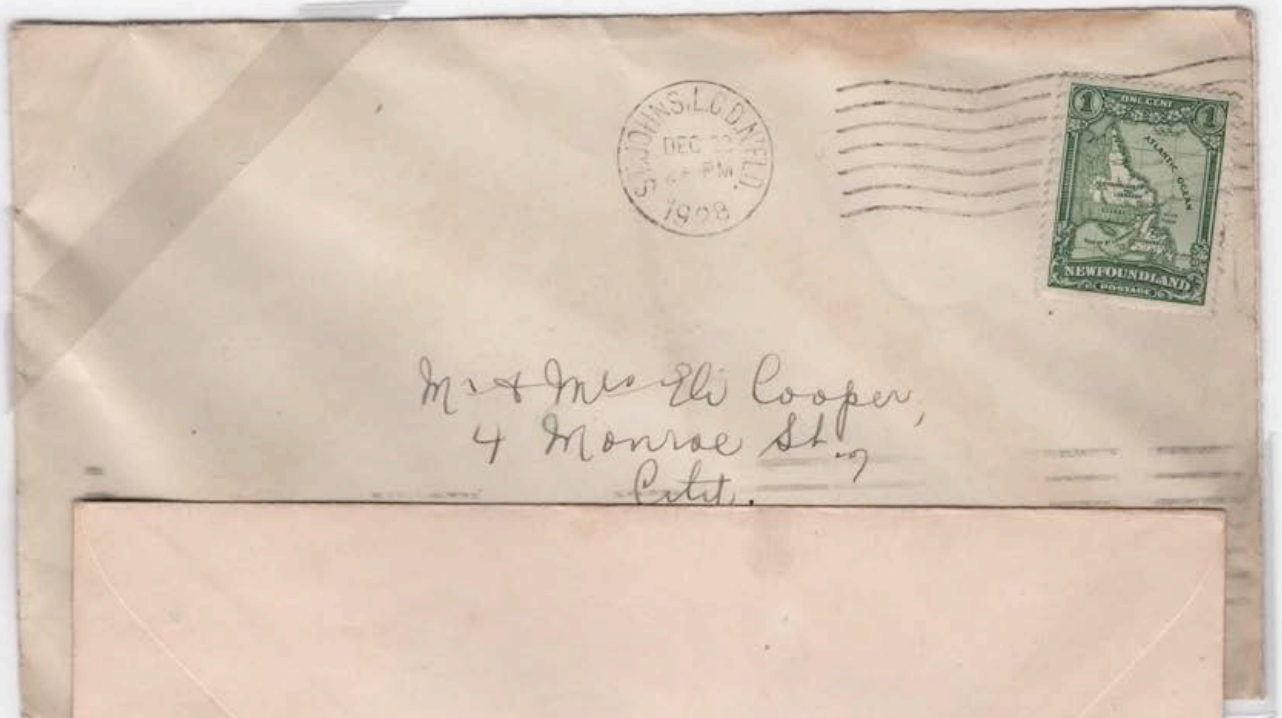 ST. JOHNS, L.C.D. N'FLD.
DEC
PM
1928
1 ONE CENT 1
ATLANTIC OCEAN
NEWFOUNDLAND
POSTAGE
Mr & Mrs Eli Cooper,
4 Monroe St.,
City.